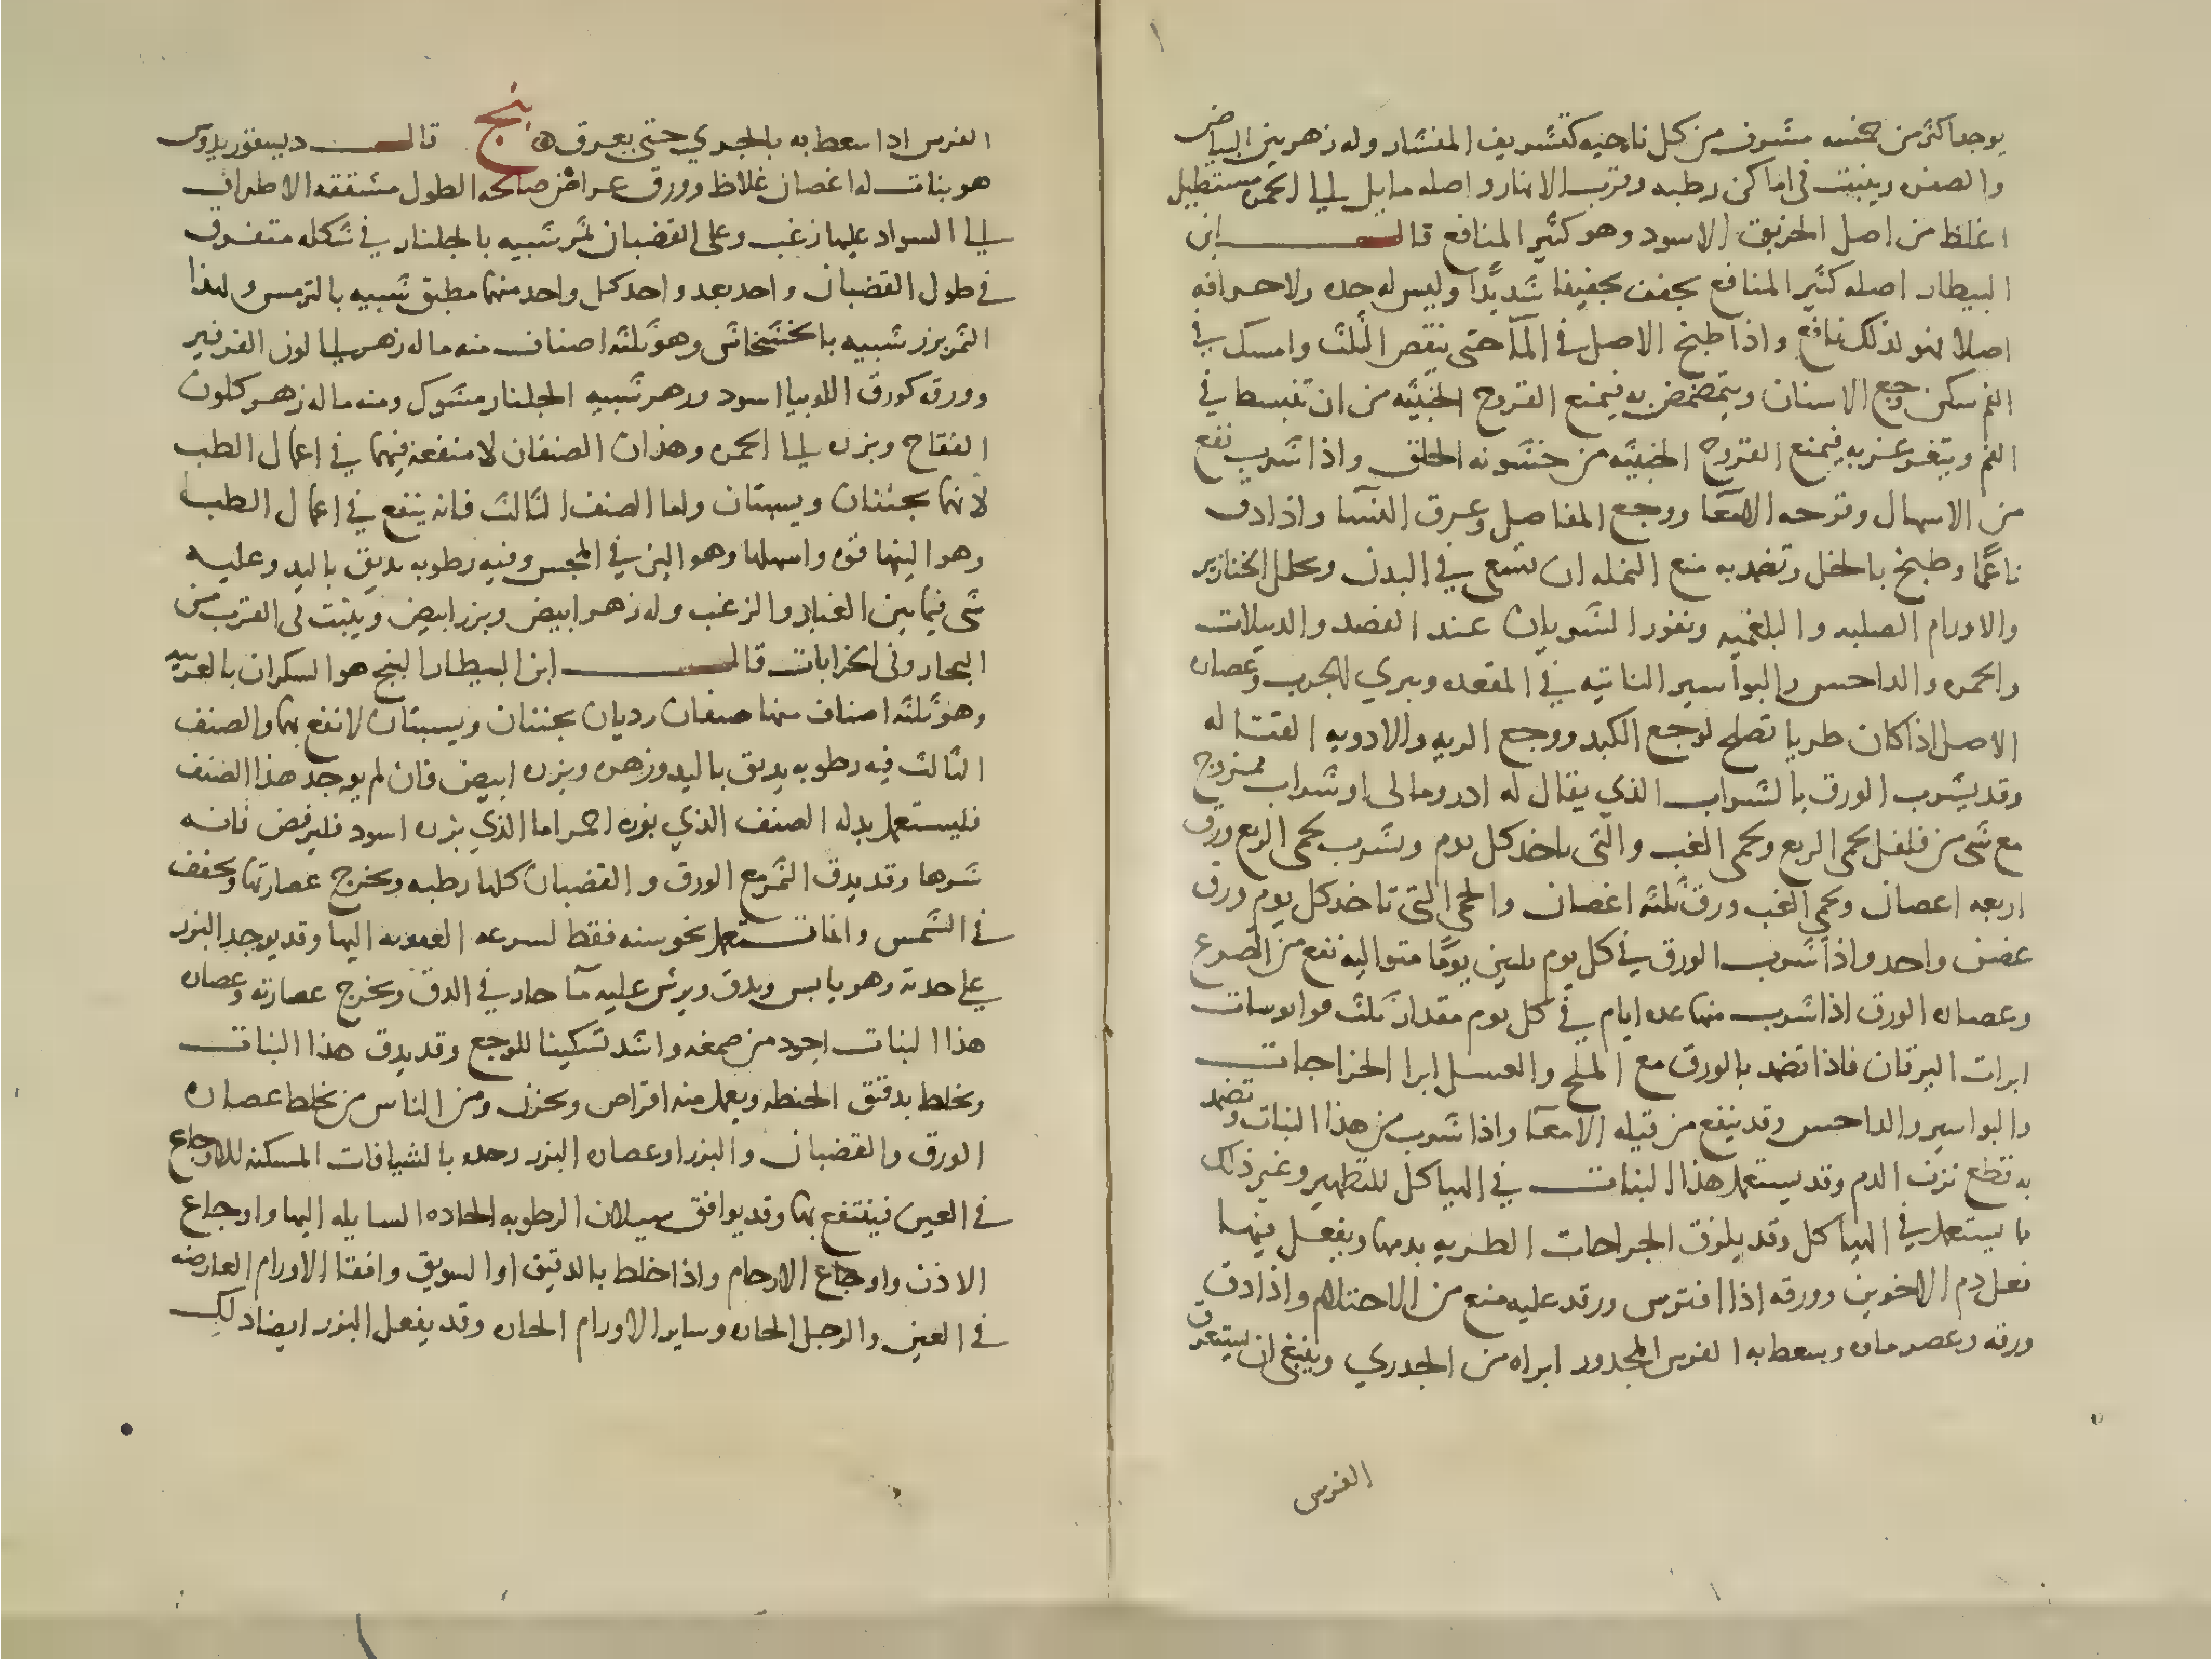 يوجد اكثر من خمسه مشرف من كل ناحيه كتشريف المنشار وله زهر بين البياض
والصفره وينبت في اماكن رطبه وقرب الانهار واصله مايل الي الحمره مستطيل
اغلظ من اصل الخربق الاسود وهو كثير المنافع قال ابن
البيطار اصله كثير المنافع يجفف تجفيفا شديدًا وليس له حده ولا حرافه
اصلا فهو لذلك نافع واذا طبخ الاصل في المآ حتي ينقص الثلث وامسك في
الفم سكن وجع الاسنان ويتمضمض به فيمنع القروح الخبيثه من ان تنبسط في
الفم ويتغرغر به فيمنع القروح الخبيثه من خشونه الحلق واذا شرب نفع
من الاسهال وقرحه الامعآ ووجع المفاصل وعرق النسا واذا دق
ناعمًا وطبخ بالخل وتضمد به منع النمله ان تسعي في البدن وحلل الخنازير
والاورام الصلبه والبلغميه ونفور الشريان عند الفصد والدبيلات
والحمره والداحس والبواسير الناتيه في المقعده ويبري الجرب وعصاره
الاصل اذا كان طريا تصلح لوجع الكبد ووجع الريه والادويه القتاله
وقد يشرب الورق بالشراب الذي يقال له ادرومالي او شراب ممزوج
مع شي من فلفل لحمي الربع ولحمي الغب والتي تاخد كل يوم ويشرب لحمي الربع ورق
اربعه اعصان ولحمي الغب ورق ثلثه اغصان والحمي التي تاخد كل يوم ورق
غصن واحد واذا شرب الورق في كل يوم ثلثين يومًا متواليه نفع من الصرع
وعصاره الورق اذا شرب منها عده ايام في كل يوم مقدار ثلث قوابوسات
ابرات اليرقان فاذا تضمد بالورق مع الملح والعسل ابرا الخراجات
والبواسير والداحس وقد ينفع من قيله الامعآ واذا شرب من هذا النبات وتضمد
به قطع نزف الدم وقد يستعمل هذا النبات في الهياكل للتطهير وغير ذلك
ما يستعمل في الهياكل وقد يلزق الجراحات الطريه بدمها ويفعل فيها
فعل دم الاخوين وورقه اذا افترش ورقد عليه منع من الاحتلام واذا دق
ورقه وعصر ماه وسعط به الفرس المجدور ابراه من الجدري وينبغي ان يستعرق
الفرس
الفرس اذا سعط به بالجري حتي يعرق ه بنج قال ديسقوريدوس
هو بنات له اغصان غلاظ وورق عراض صالحه الطول مشققه الاطراف
الي السواد عليها زغب وعلي القضبان ثمر شبيه بالجلنار في شكله متفرق
في طول القضبان واحد بعد واحد كل واحد منها مطبق شبيه بالترس ولهذا
الثمر بزر شبيه بالخشخاش وهو ثلثه اصناف منه ما له زهر الي لون الفرفير
وورقه كورق اللوبيا اسود وزهر شبيه الجلنار مشوك ومنه ما له زهر كلون
التفاح وبزره الي الحمره وهذان الصنفان لا منفعه فيهما في اعمال الطب
لانهما يجننان ويسبتان واما الصنف الثالث فانه ينفع في اعمال الطب
وهو الينها قوه واسهلها وهو الين في المجس وفيه رطوبه تدبق باليد وعليه
شي فيما بين الغبار والزغب وله زهر ابيض وبزر ابيض وينبت في القرب من
البحار وفي الخرابات قال ابن البيطار البنج هو السكران بالعربيه
وهو ثلثه اصناف منها صنفان رديان يجننان ويسبتان لا نفع بهما والصنف
الثالث فيه رطوبه يدبق باليد وزهره وبزره ابيض فان لم يوجد هذا الصنف
فليستعمل بدله الصنف الذي بزره احمر اما الذي بزره اسود فليرفض فانه
شرها وقد يدق الثمر مع الورق والقضبان كلها رطبه ويخرج عصارتها ويجفف
في الشمس وانما تستعمل نحو سنه فقط لسرعه العفونه اليها وقد يوجد البزر
علي حدته وهو يابس ويدق ويرش عليه مآ حار في الدق ويخرج عصارته وعصاره
هذا النبات اجود من صمغه واشد تسكينا للوجع وقد يدق هذا النبات
ويخلط بدقيق الحنطه ويعمل منه اقراص ويخزن ومن الناس من يخلط عصاره
الورق والقضبان والبزر او عصاره البزر وحده بالشيافات المسكنه للاوجاع
في العين فينتفع بها وقد يوافق سيلان الرطوبه الحاده السايله اليها واوجاع
الاذن واوجاع الارحام واذا خلط بالدقيق او السويق وافقا الاورام العارضه
في العين والرجل الحاره وساير الاورام الحاره وقد يفعل البزر ايضا ذلك